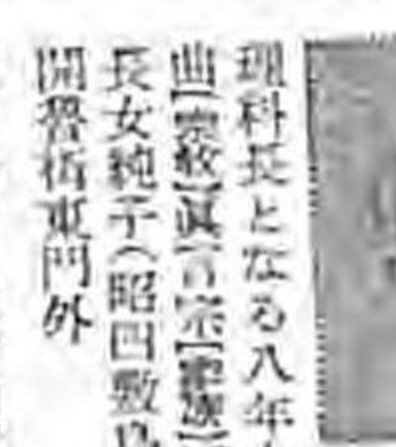 理科長となる八年
曲【宗敎】眞言宗【家族】
長女純子(昭四數
開魯街東門外